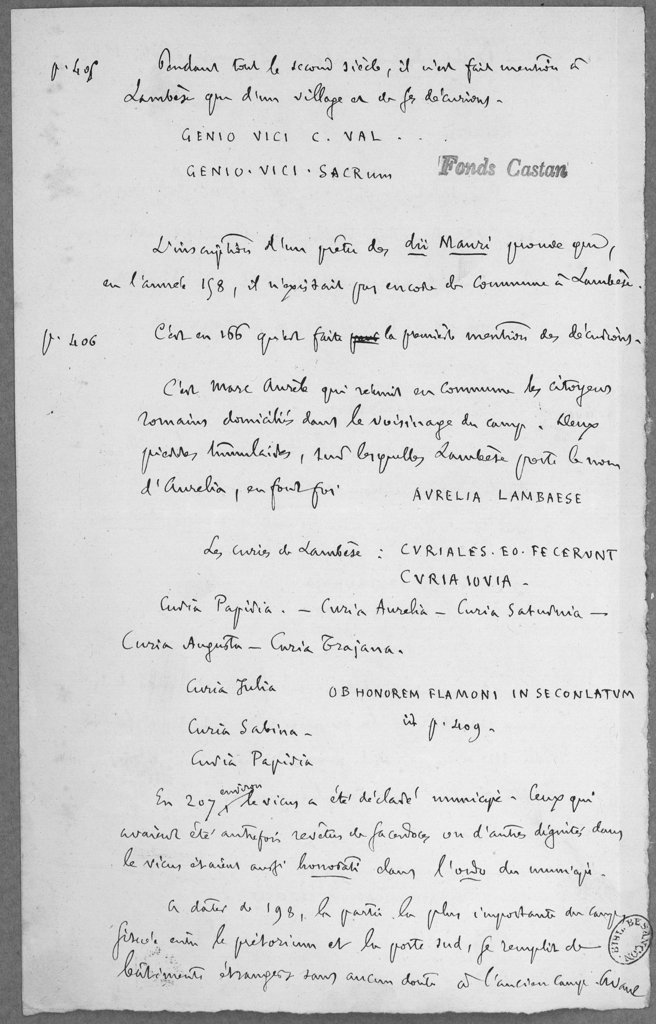 p. 405 Pendant tout le second siècle, il n'est fait mention à
Lambèse que d'un village et de ses décurions.
GENIO VICI C. VAL . . .
GENIO. VICI. SACRum
Fonds Castan
L'inscription d'un prêtre des dii Mauri prouve que,
en l'année 158, il n'existait pas encore de commune à Lambèse.
p. 406 C'est en 166 qu'est faite la première mention des décurions.
C'est Marc Aurèle qui réunit en commune les citoyens
romains domiciliés dans le voisinage du camp. Deux
pierres tumulaires, sur lesquelles Lambèse porte le nom
d'Aurelia, en font foi AVRELIA LAMBAESE
Les curies de Lambèse : CVRIALES. EO. FECERVNT
CVRIA IOVIA -
Curia Papiria. - Curia Aurelia - Curia Saturnia -
Curia Augusta - Curia Trajana.
Curia Julia OB HONOREM FLAMONI IN SE CONLATVM
p. 409.
Curia Sabina -
Curia Papiria
En 207 environ le vicus a été déclaré municipe. Ceux qui
avaient été autrefois revêtus de sacerdoces ou d'autres dignités dans
le vicus étaient aussi honorati dans l'ordo du municipe.
A dater de 198, la partie la plus importante du camp,
située entre le prétorium et la porte sud, se remplit de
bâtiments étrangers sans aucun doute à l'ancien camp. Avant
BIBL. BESANÇON